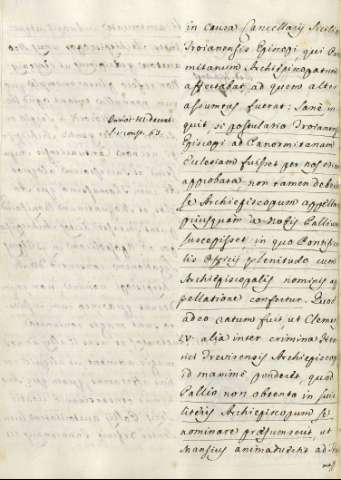 in causa Cancellarij Sicilie
Troianensis Episcopi, qui Pa
normitanum Archiepiscopatum
affectabat, ad quem alter
assumptus fuerat: Sane in
quit, si postulatio Troianen
Episcopi ad Panormitanam
Ecclesiam fuisset per nos etiam
approbata, non tamen debuis
se Archiepiscopum appellari
priusquam a Nobis Pallium
suscepisset, in quo Pontifica
lis Officij plenitudo cum
Archiepiscopalis nominis ap
pellatione confertur. Quod
adeo ratum fuit, ut Clemens
IV. alia inter crimina Hen
rici Trevirensis Archiepiscopi
id maxime ponderet, quod
Pallio non obtento in suis
literis Archiepiscopum se
nominare præsumpserit, ut
Mansius animadvertit ad